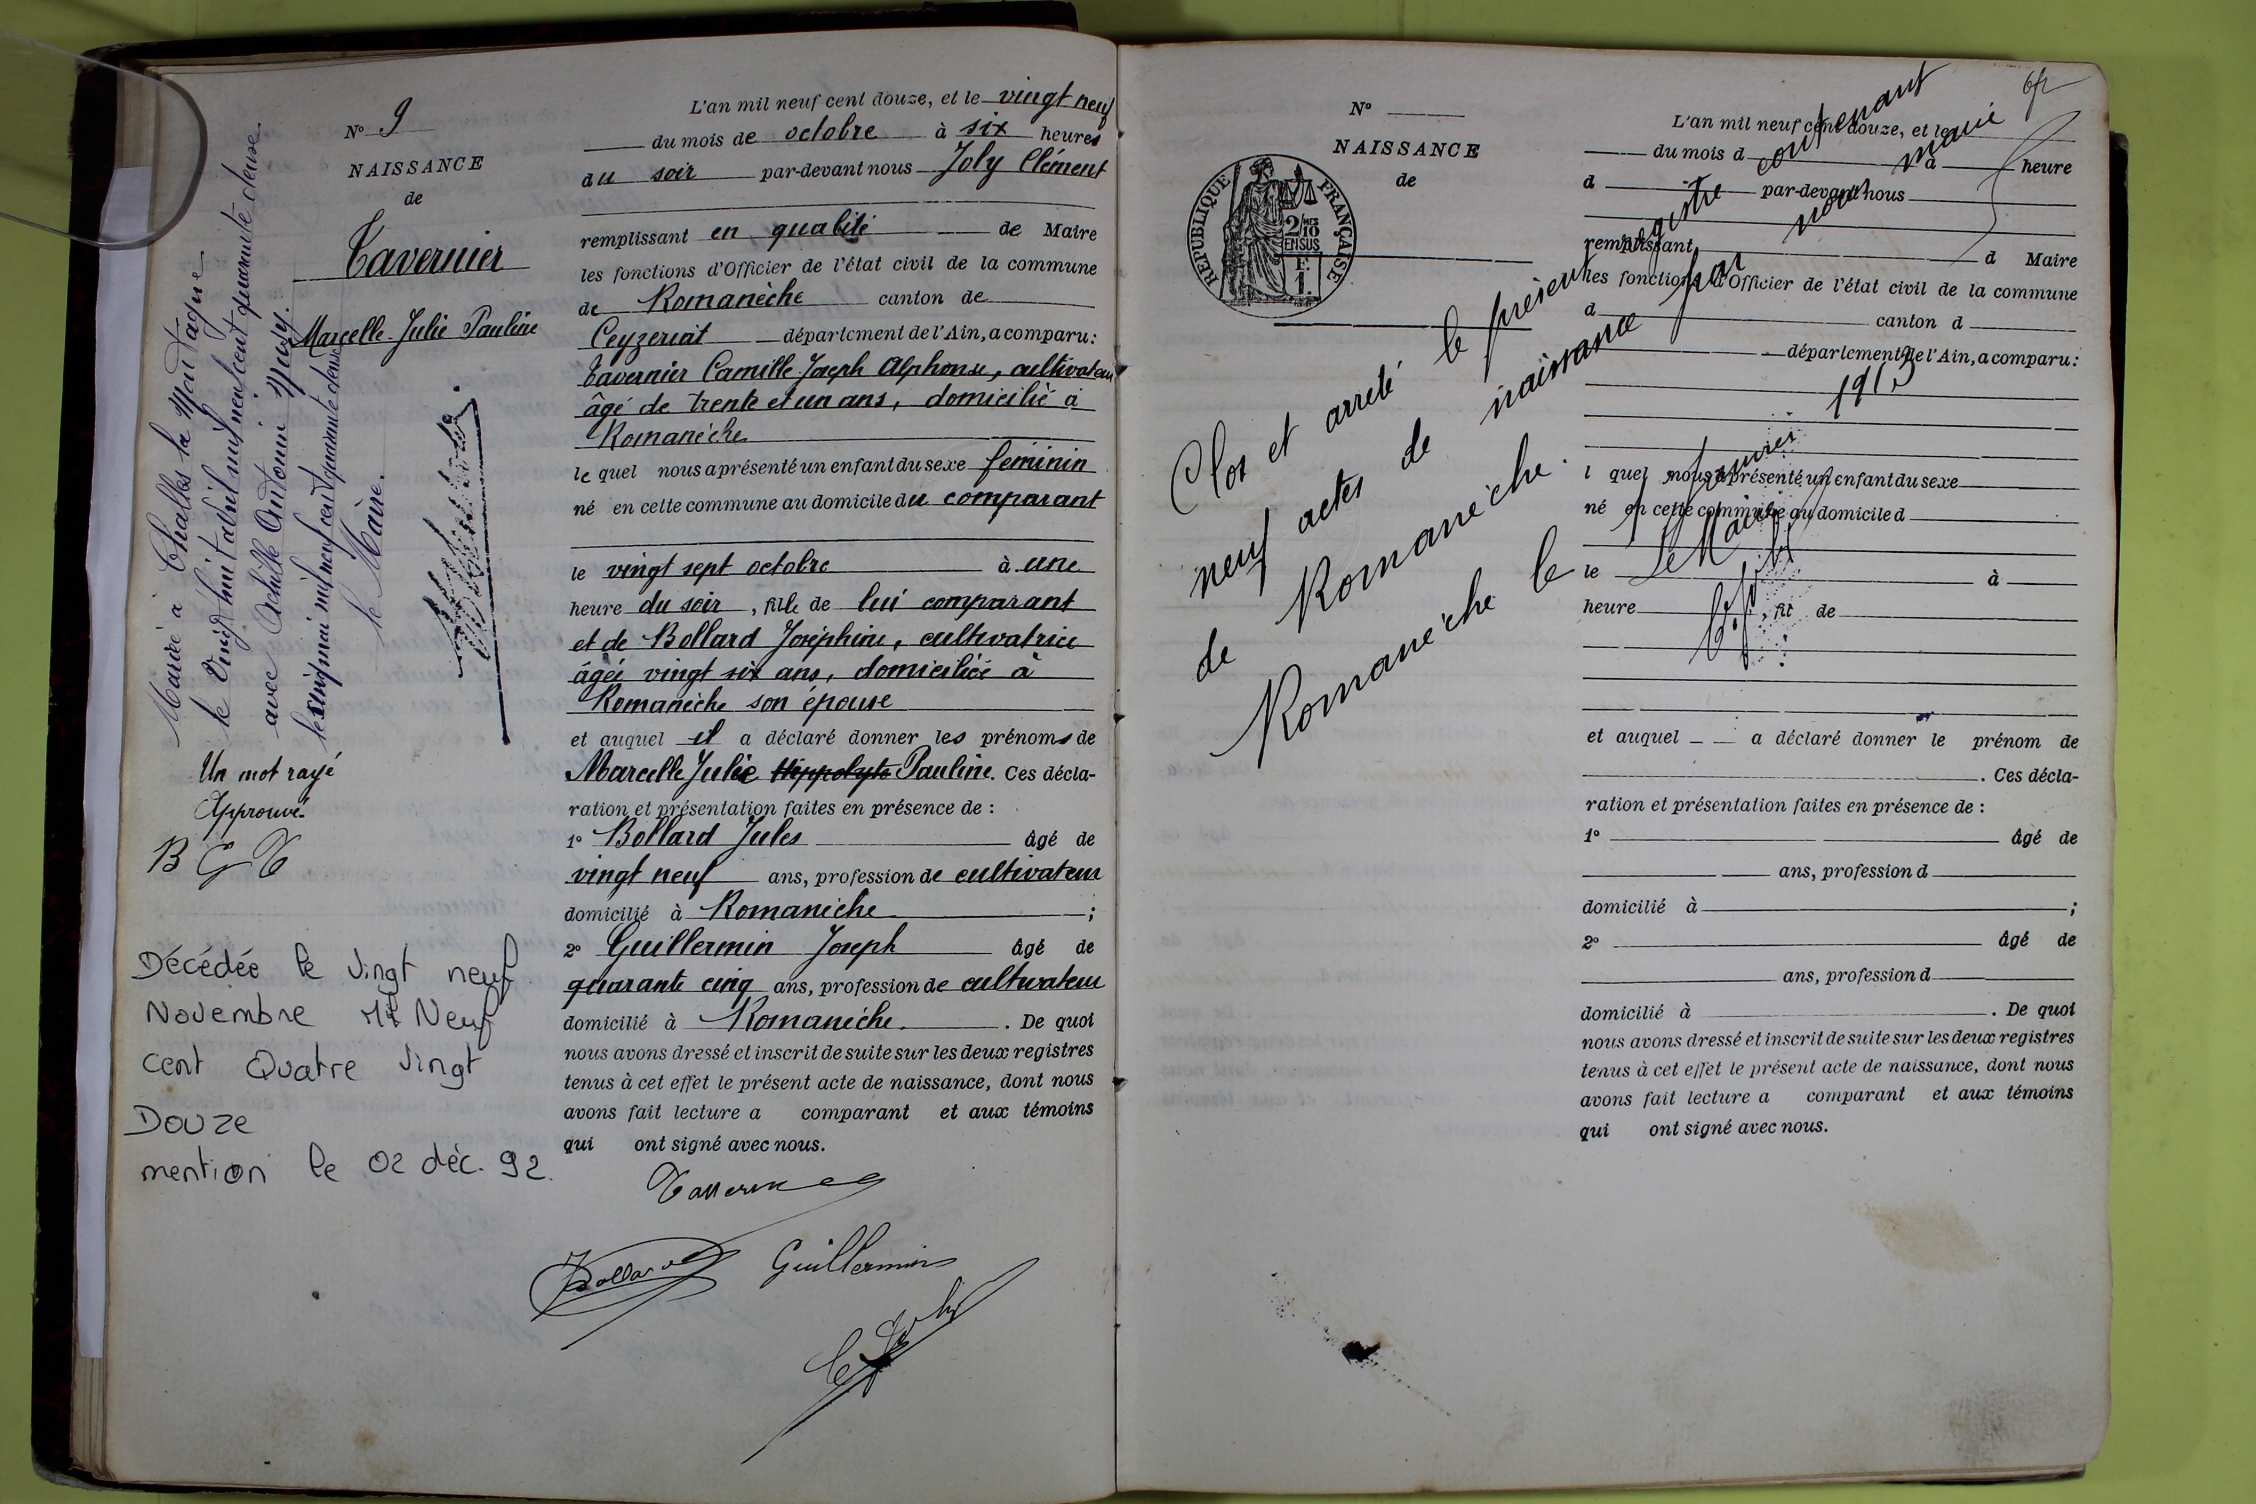 N° 9
NAISSANCE
de
Tavernier
Marcelle Julie Pauline
Mariée à Challes la Montagne
le Vingt huit avril mil neuf cent quarante deux
avec Achille Antonin Musy.
le cinq mai mil neuf cent quarante deux
le Maire.
Un mot rayé
Approuvé
B G T
Décédée le Vingt neuf
Novembre Mil Neuf
cent Quatre Vingt
Douze
mention le 02 déc. 92.
L'an mil neuf cent douze, et le vingt neuf
du mois de octobre à six heures
du soir par-devant nous Joly Clément
remplissant en qualité de Maire
les fonctions d'Officier de l'état civil de la commune
de Romanèche canton de
Ceyzeriat département de l'Ain, a comparu:
Tavernier Camille Joseph Alphonse, cultivateur
âgé de trente et un ans, domicilié à
Romanèche
le quel nous a présenté un enfant du sexe féminin
né en cette commune au domicile du comparant
le vingt sept octobre à une
heure du soir, fille de lui comparant
et de Bollard Joséphine, cultivatrice
âgée vingt six ans, domiciliée à
Romanèche son épouse
et auquel il a déclaré donner les prénoms de
Marcelle Julie Hippolyte Pauline. Ces décla-
ration et présentation faites en présence de :
1° Bollard Jules âgé de
vingt neuf ans, profession de cultivateur
domicilié à Romanèche ;
2° Guillermin Joseph âgé de
quarante cinq ans, profession de cultivateur
domicilié à Romanèche. De quoi
nous avons dressé et inscrit de suite sur les deux registres
tenus à cet effet le présent acte de naissance, dont nous
avons fait lecture a comparant et aux témoins
qui ont signé avec nous.
Tavernier
Bollard Guillermin
C Joly
N°
NAISSANCE
de
RÉPUBLIQUE FRANÇAISE
2/10
EN SUS
F.
1.
Clos et arrêté le présent registre contenant
neuf actes de naissance par nous maire
de Romanèche.
Romanèche le 1er janvier 1913
Le Maire
C Joly
L'an mil neuf cent douze, et le
du mois d à heure
d par-devant nous
remplissant d Maire
les fonctions d'Officier de l'état civil de la commune
d canton d
département de l'Ain, a comparu:
l quel nous a présenté un enfant du sexe
né en cette commune au domicile d
le à
heure , fil de
et auquel a déclaré donner le prénom de
. Ces décla-
ration et présentation faites en présence de :
1° âgé de
ans, profession d
domicilié à ;
2° âgé de
ans, profession d
domicilié à . De quoi
nous avons dressé et inscrit de suite sur les deux registres
tenus à cet effet le présent acte de naissance, dont nous
avons fait lecture a comparant et aux témoins
qui ont signé avec nous.